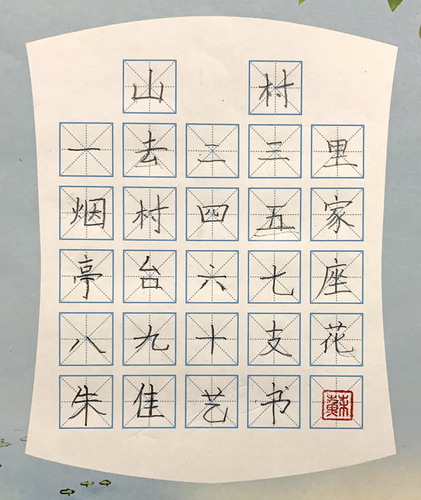 山村
一去二三里
烟村四五家
亭台六七座
八九十支花
朱佳艺书